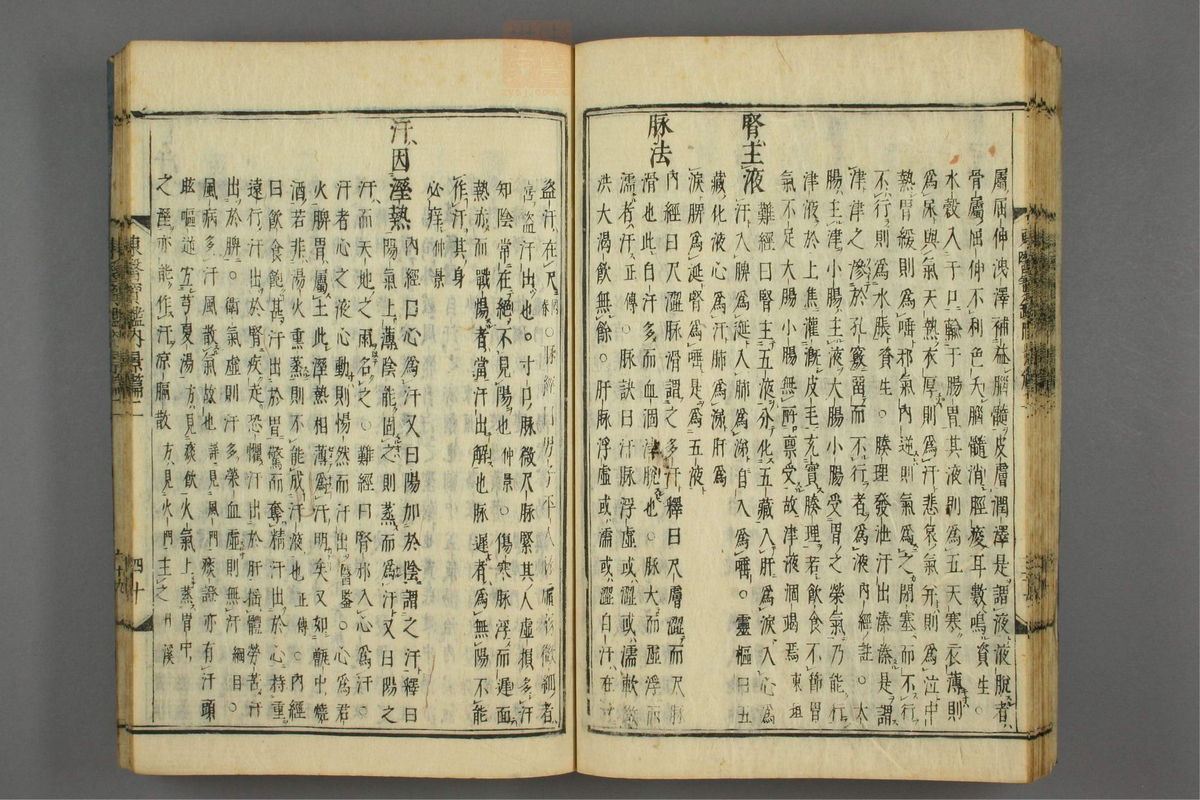 屬屈伸洩澤補益腦髓皮膚潤澤是謂液液脫者
骨屬屈伸不利色夭腦髓消脛痠耳數鳴資生
水穀入于口輸于腸胃其液別爲五天寒衣薄則
爲尿與氣天熱衣厚則爲汗悲哀氣并則爲泣中
熱胃緩則爲唾邪氣內逆則氣爲之閉塞而不行
不行則爲水脹養生○腠理發泄汗出溱溱是謂
津津之滲於孔竅留而不行者爲液內經註○大
腸主津小腸主液大腸小腸受胃之榮氣乃能行
津液於上焦灌漑皮毛充實腠理若飮食不節胃
氣不足大腸小腸無所稟受故津液涸竭焉東垣
腎主液
難經曰腎主五液分化五藏入肝爲淚入心爲
汗入脾爲涎入肺爲涕自入爲唾○靈樞曰五
藏化液心爲汗肺爲涕肝爲
淚脾爲涎腎爲唾是爲五液
脉法
內經曰尺澀脉滑謂之多汗釋曰尺膚澀而尺脉
滑也此自汗多而血涸津脫也○脉大而虛浮而
濡者汗正傳○脉訣曰汗脉浮虛或澀或濡軟散
洪大渴飮無餘○肝脉浮虛或濡或澀自汗在
盜汗在尺○脉經曰男子平人脉虛弱微細者
喜盜汗出也○寸口脉微尺脉緊其人虛損多汗
知陰常在絶不見陽也仲景○傷寒脉浮而遲面
熱赤而戰惕者當汗出解也脉遲者爲無陽不能
作汗其身
必痒仲景
汗因溼熱
內經曰心爲汗又曰陽加於陰謂之汗釋曰
陽氣上薄陰能固之則蒸而爲汗又曰陽之
汗而天地之雨名之○難經曰腎邪入心爲汗○
汗者心之液心動則惕然而汗出醫鑑○心爲君
火脾胃屬土此溼熱相薄爲汗明矣又如甑中燒
酒若非湯火熏蒸則不能成汗液也正傳○內經
曰飮食飽甚汗出於胃驚而奪精汗出於心持重
遠行汗出於腎疾走恐懼汗出於肝搖體勞苦汗
出於脾○衛氣虛則汗多榮血虛則無汗綱目○
風病多汗風散氣故也詳見風門痰證亦有汗頭
眩嘔逆宜芎夏湯方見痰飮火氣上蒸胃中
之溼亦能作汗凉膈散方見火門主之丹溪
東醫寶鑑內景篇二
四十